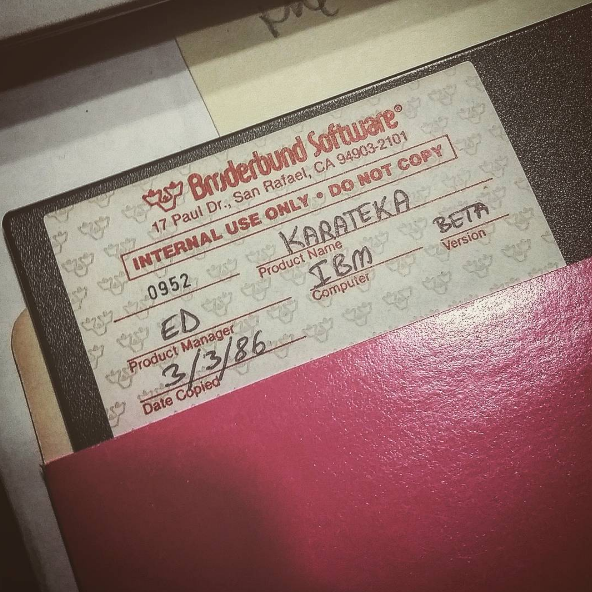 Brøderbund Software®
17 Paul Dr., San Rafael, CA 94903-2101
INTERNAL USE ONLY • DO NOT COPY
0952 KARATEKA
Product Name
ED IBM BETA
Product Manager Computer Version
3/3/86
Date Copied